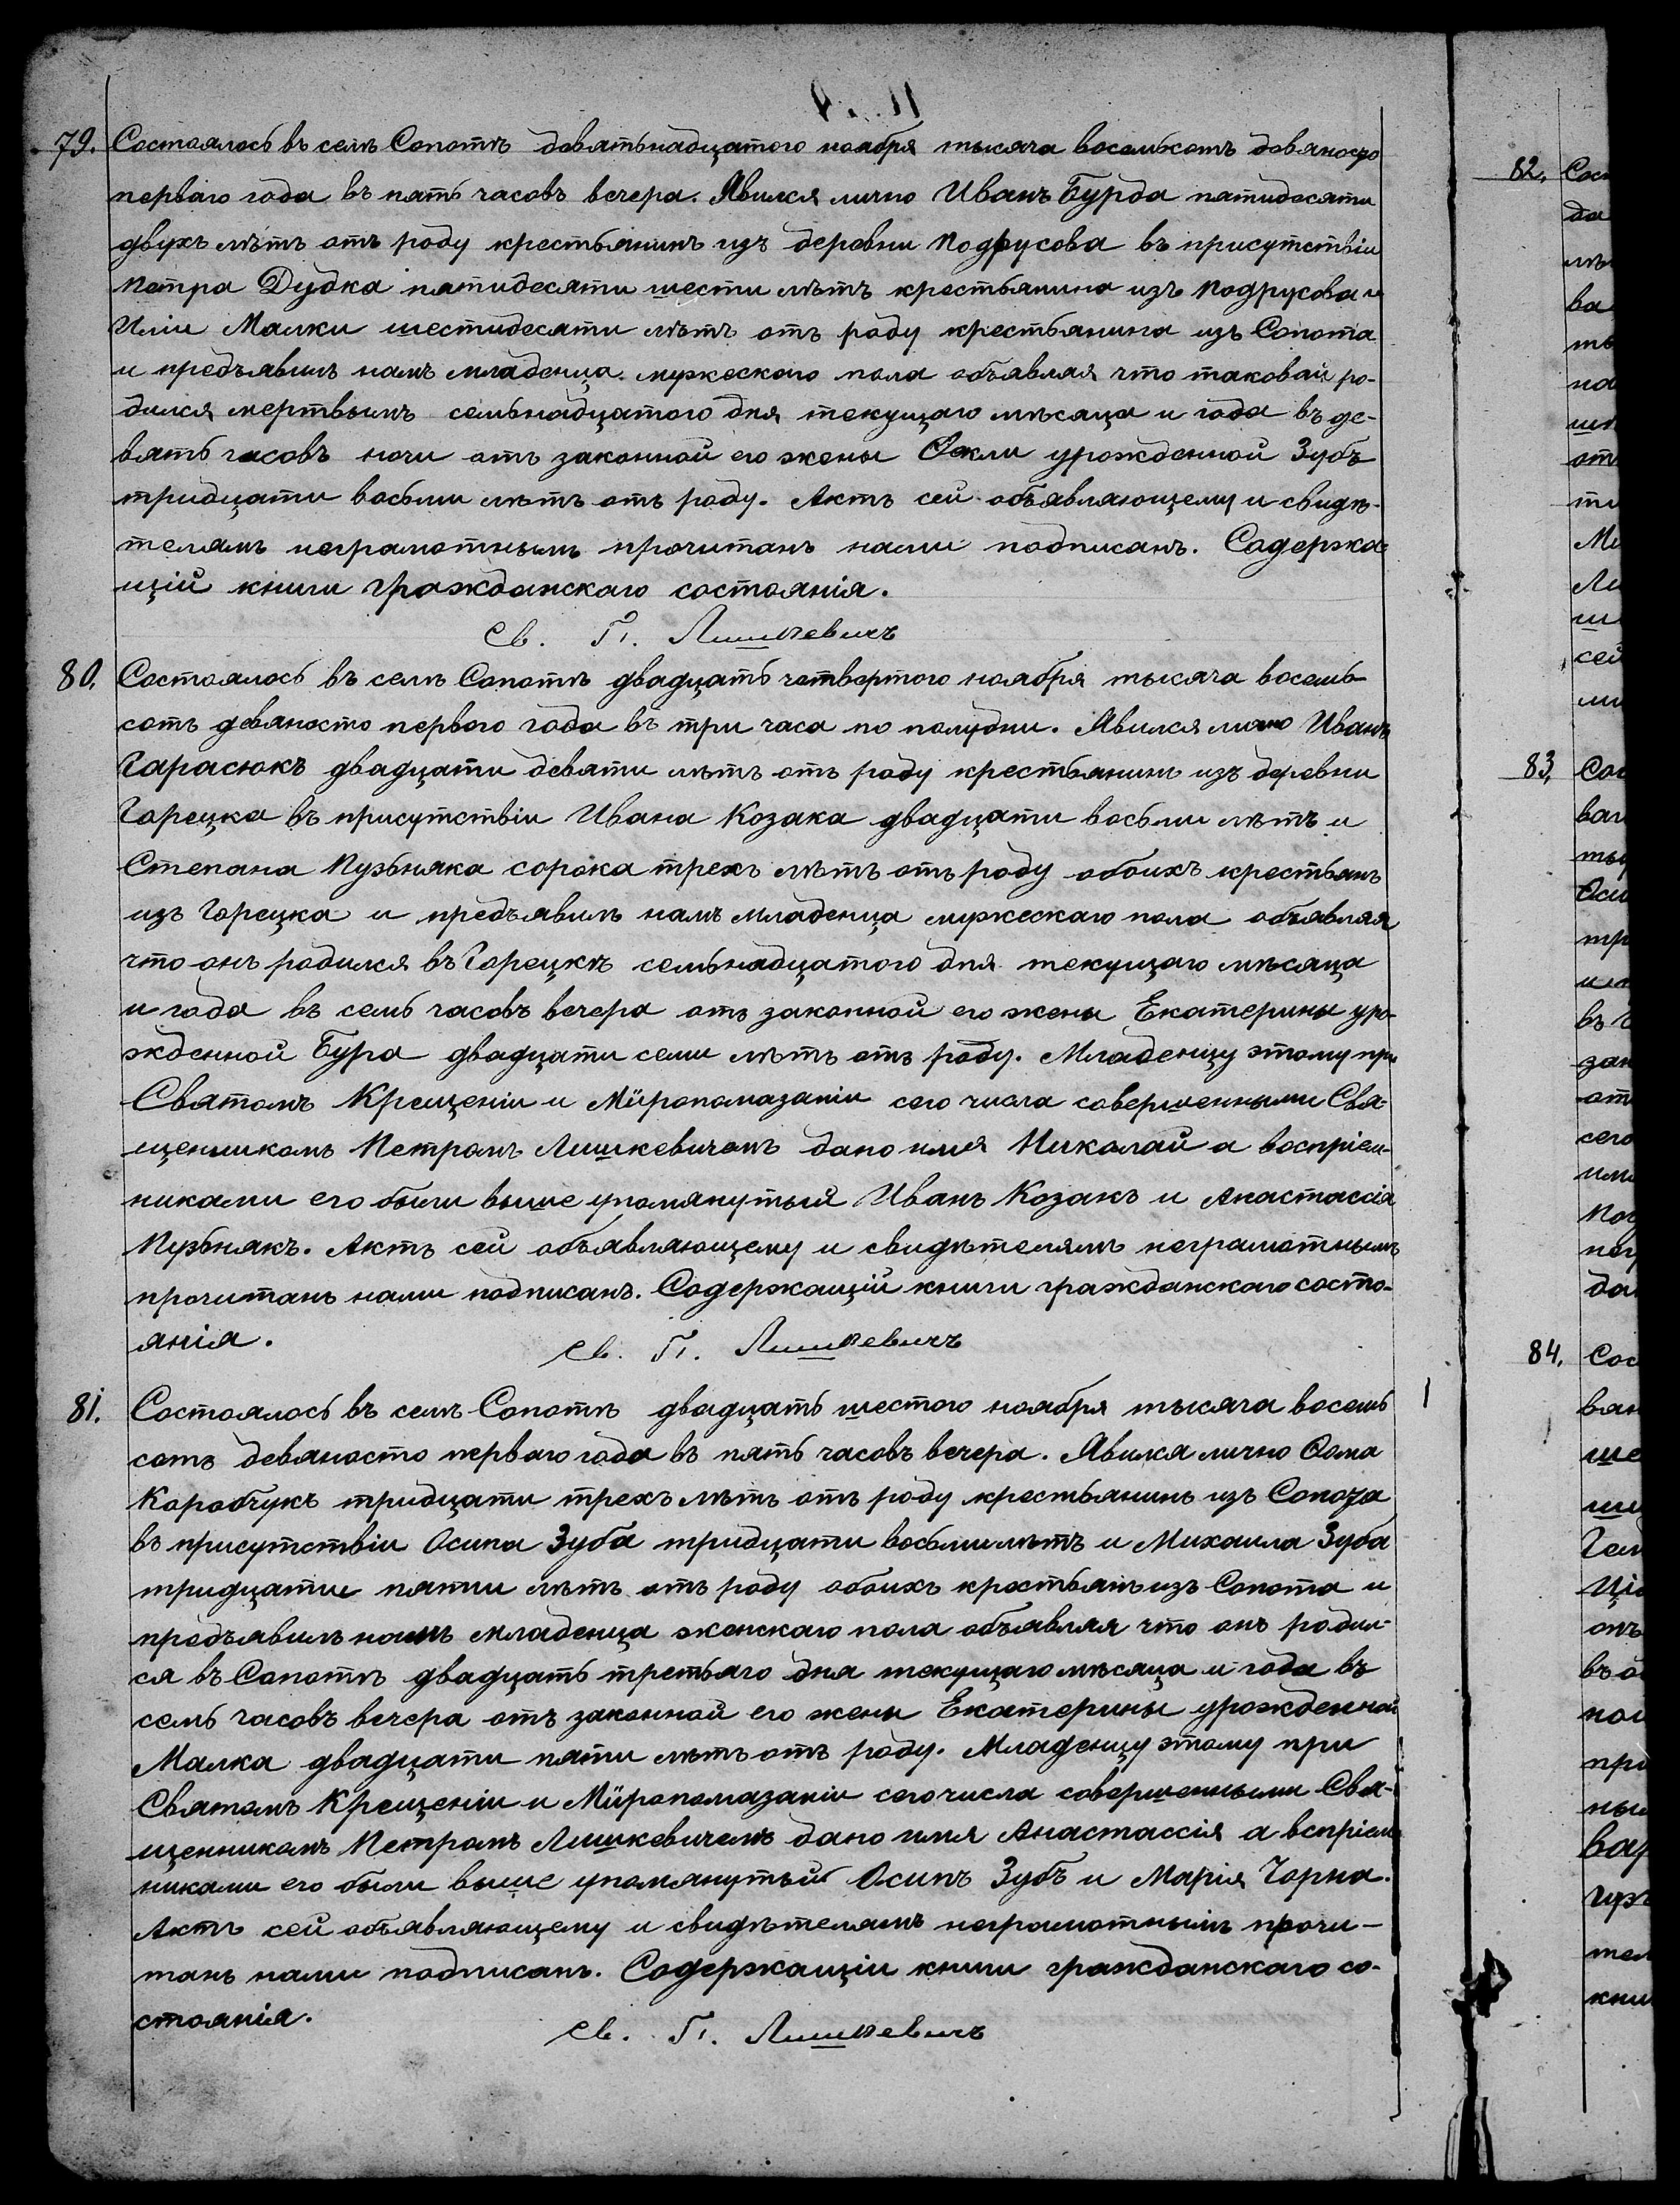 79. Состоялось въ селѣ Сопотѣ девятьнадцатого ноября тысяча восемьсотъ девяносто
перваго года въ пять часовъ вечера. Явился лично Иванъ Бурда пятидесяти
двухъ лѣтъ отъ роду крестьянинъ изъ деревни Подрусова въ присутствіи
Петра Дудка пятидесяти шести лѣтъ крестьянина изъ Подрусова и
Иліи Малки шестидесяти лѣтъ отъ роду крестьянина изъ Сопота
и предъявилъ намъ младенца мужескаго пола объявляя что таковый ро-
дился мертвымъ семьнадцатого дня текущаго мѣсяца и года въ де-
вять часовъ ночи отъ законной его жены Ѳекли урожденной Зубъ
тридцати восьми лѣтъ отъ роду. Актъ сей объявляющему и свидѣ-
телямъ неграмотнымъ прочитанъ нами подписанъ. Содержа-
щій книги гражданскаго состоянія.
Св. П. Лишкевичъ
80. Состоялось въ селѣ Сопотѣ двадцать четвертого ноября тысяча восемь
сотъ девяносто первого года въ три часа по полудни. Явился лично Иванъ
Гарасюкъ двадцати девяти лѣтъ отъ роду крестьянинъ изъ деревни
Горецка въ присутствіи Ивана Козака двадцати восьми лѣтъ и
Степана Пузьняка сорока трехъ лѣтъ отъ роду обоихъ крестьянъ
изъ Горецка и предъявилъ намъ младенца мужескаго пола объявляя
что онъ родился въ Горецкѣ семьнадцатого дня текущаго мѣсяца
и года въ семь часовъ вечера отъ законной его жены Екатерины уро-
жденной Бура двадцати семи лѣтъ отъ роду. Младенцу этому при
Святомъ Крещеніи и Мѵропомазаніи сего числа совершенными Свя-
щенникомъ Петромъ Лишкевичемъ дано имя Николай а воспріем-
никами его были выше упомянутый Иванъ Козакъ и Анастассія
Пузьнякъ. Актъ сей объявляющему и свидѣтелямъ неграмотнымъ
прочитанъ нами подписанъ. Содержащій книги гражданскаго состо-
янія.
Св. П. Лишкевичъ
81. Состоялось въ селѣ Сопотѣ двадцать шестого ноября тысяча восемь
сотъ девяносто перваго года въ пять часовъ вечера. Явился лично Ѳома
Коробчукъ тридцати трехъ лѣтъ отъ роду крестьянинъ изъ Сопота
въ присутствіи Осипа Зуба тридцати восьми лѣтъ и Михаила Зуба
тридцати пяти лѣтъ отъ роду обоихъ крестьянъ изъ Сопота и
предъявилъ намъ младенца женскаго пола объявляя что онъ родил-
ся въ Сопотѣ двадцать третьяго дня текущаго мѣсяца и года въ
семь часовъ вечера отъ законной его жены Екатерины урожденной
Малка двадцати пяти лѣтъ отъ роду. Младенцу этому при
Святомъ Крещеніи и Мѵропомазаніи сего числа совершенными Свя-
щенникомъ Петромъ Лишкевичемъ дано имя Анастассія а вспріем-
никами его были выше упомянутый Осипъ Зубъ и Марія Чорна.
Актъ сей объявляющему и свидѣтелямъ неграмотнымъ прочи-
танъ нами подписанъ. Содержащій книги гражданскаго со-
стоянія.
Св. П. Лишкевичъ
82.
83.
84.